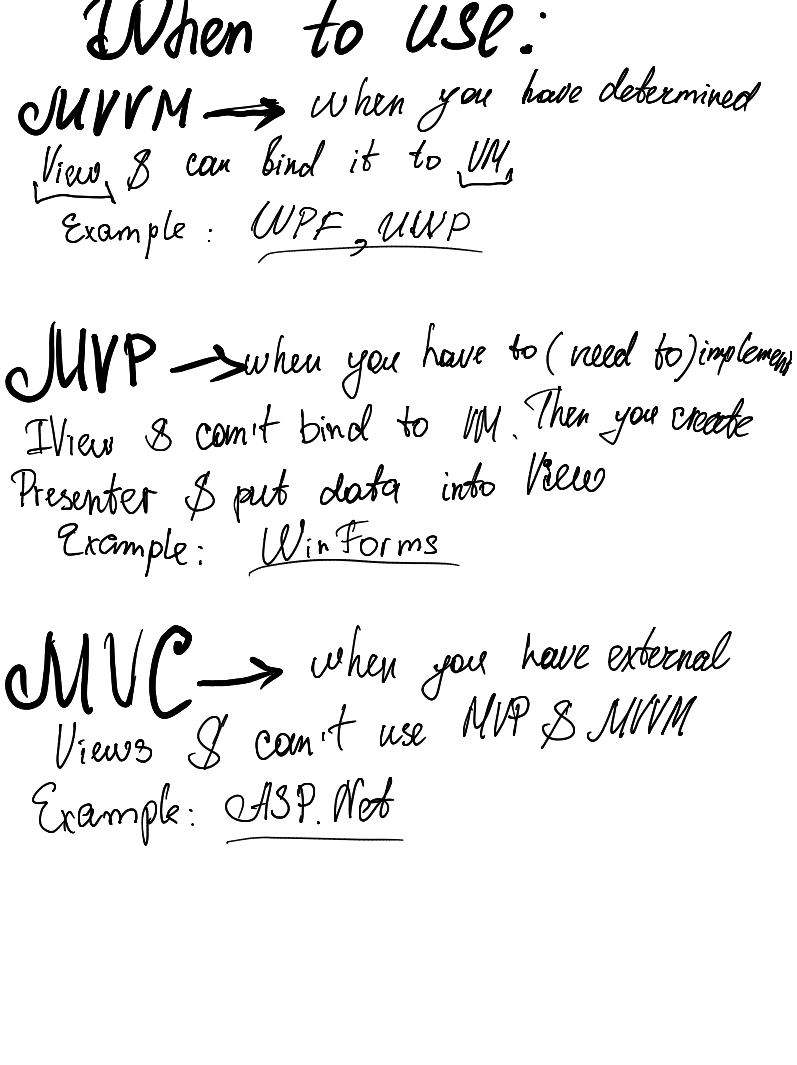 When to use:
MVVM → when you have determined
View & can bind it to VM,
Example: WPF, UWP
MVP → when you have to (need to) implement
IView & can't bind to VM. Then you create
Presenter & put data into View
Example: WinForms
MVC → when you have external
Views & can't use MVP & MVVM
Example: ASP.Net